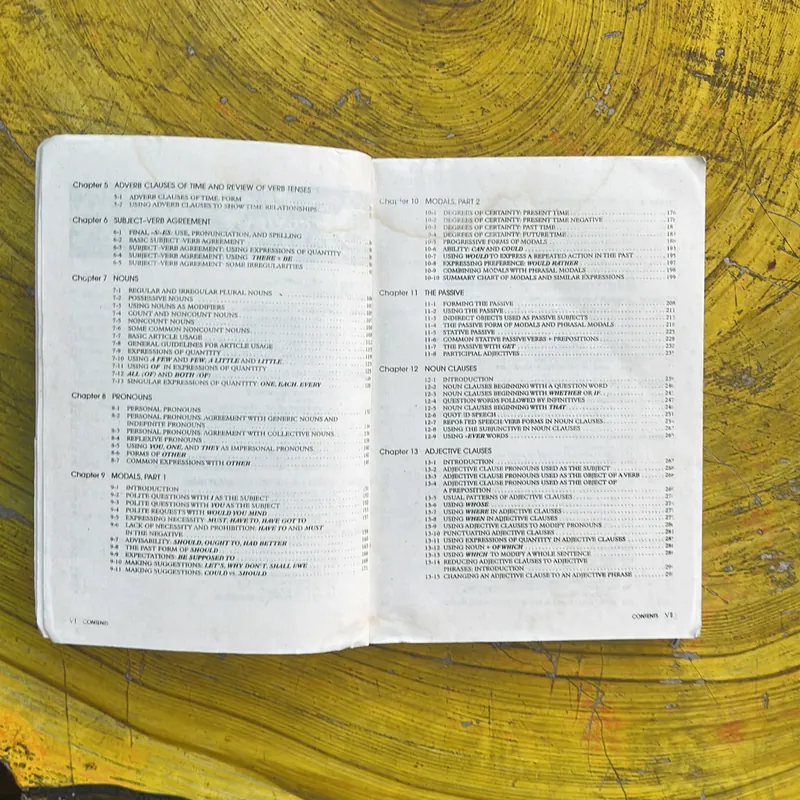 Chapter 5 ADVERB CLAUSES OF TIME AND REVIEW OF VERB TENSES
5-1 ADVERB CLAUSES OF TIME: FORM
5-2 USING ADVERB CLAUSES TO SHOW TIME RELATIONSHIPS
Chapter 6 SUBJECT-VERB AGREEMENT
6-1 FINAL -S/-ES: USE, PRONUNCIATION, AND SPELLING
6-2 BASIC SUBJECT-VERB AGREEMENT
6-3 SUBJECT-VERB AGREEMENT: USING EXPRESSIONS OF QUANTITY
6-4 SUBJECT-VERB AGREEMENT: USING THERE + BE
6-5 SUBJECT-VERB AGREEMENT: SOME IRREGULARITIES
Chapter 7 NOUNS
7-1 REGULAR AND IRREGULAR PLURAL NOUNS
7-2 POSSESSIVE NOUNS
7-3 USING NOUNS AS MODIFIERS
7-4 COUNT AND NONCOUNT NOUNS
7-5 NONCOUNT NOUNS
7-6 SOME COMMON NONCOUNT NOUNS
7-7 BASIC ARTICLE USAGE
7-8 GENERAL GUIDELINES FOR ARTICLE USAGE
7-9 EXPRESSIONS OF QUANTITY
7-10 USING A FEW AND FEW; A LITTLE AND LITTLE
7-11 USING OF IN EXPRESSIONS OF QUANTITY
7-12 ALL (OF) AND BOTH (OF)
7-13 SINGULAR EXPRESSIONS OF QUANTITY: ONE, EACH, EVERY
Chapter 8 PRONOUNS
8-1 PERSONAL PRONOUNS
8-2 PERSONAL PRONOUNS: AGREEMENT WITH GENERIC NOUNS AND
INDEFINITE PRONOUNS
8-3 PERSONAL PRONOUNS: AGREEMENT WITH COLLECTIVE NOUNS
8-4 REFLEXIVE PRONOUNS
8-5 USING YOU, ONE, AND THEY AS IMPERSONAL PRONOUNS
8-6 FORMS OF OTHER
8-7 COMMON EXPRESSIONS WITH OTHER
Chapter 9 MODALS, PART 1
9-1 INTRODUCTION
9-2 POLITE QUESTIONS WITH I AS THE SUBJECT
9-3 POLITE QUESTIONS WITH YOU AS THE SUBJECT
9-4 POLITE REQUESTS WITH WOULD YOU MIND
9-5 EXPRESSING NECESSITY: MUST, HAVE TO, HAVE GOT TO
9-6 LACK OF NECESSITY AND PROHIBITION: HAVE TO AND MUST
IN THE NEGATIVE
9-7 ADVISABILITY: SHOULD, OUGHT TO, HAD BETTER
9-8 THE PAST FORM OF SHOULD
9-9 EXPECTATIONS: BE SUPPOSED TO
9-10 MAKING SUGGESTIONS: LET'S, WHY DON'T, SHALL I/WE
9-11 MAKING SUGGESTIONS: COULD vs. SHOULD
VI CONTENTS
Chapter 10 MODALS, PART 2
10-1 DEGREES OF CERTAINTY: PRESENT TIME
10-2 DEGREES OF CERTAINTY: PRESENT TIME NEGATIVE
10-3 DEGREES OF CERTAINTY: PAST TIME
10-4 DEGREES OF CERTAINTY: FUTURE TIME
10-5 PROGRESSIVE FORMS OF MODALS
10-6 ABILITY: CAN AND COULD
10-7 USING WOULD TO EXPRESS A REPEATED ACTION IN THE PAST
10-8 EXPRESSING PREFERENCE: WOULD RATHER
10-9 COMBINING MODALS WITH PHRASAL MODALS 198
10-10 SUMMARY CHART OF MODALS AND SIMILAR EXPRESSIONS 199
Chapter 11 THE PASSIVE
11-1 FORMING THE PASSIVE 208
11-2 USING THE PASSIVE 211
11-3 INDIRECT OBJECTS USED AS PASSIVE SUBJECTS
11-4 THE PASSIVE FORM OF MODALS AND PHRASAL MODALS
11-5 STATIVE PASSIVE 225
11-6 COMMON STATIVE PASSIVE VERBS + PREPOSITIONS
11-7 THE PASSIVE WITH GET 232
11-8 PARTICIPIAL ADJECTIVES
Chapter 12 NOUN CLAUSES
12-1 INTRODUCTION
12-2 NOUN CLAUSES BEGINNING WITH A QUESTION WORD
12-3 NOUN CLAUSES BEGINNING WITH WHETHER OR IF
12-4 QUESTION WORDS FOLLOWED BY INFINITIVES
12-5 NOUN CLAUSES BEGINNING WITH THAT
12-6 QUOTED SPEECH
12-7 REPORTED SPEECH: VERB FORMS IN NOUN CLAUSES
12-8 USING THE SUBJUNCTIVE IN NOUN CLAUSES
12-9 USING -EVER WORDS
Chapter 13 ADJECTIVE CLAUSES
13-1 INTRODUCTION
13-2 ADJECTIVE CLAUSE PRONOUNS USED AS THE SUBJECT
13-3 ADJECTIVE CLAUSE PRONOUNS USED AS THE OBJECT OF A VERB
13-4 ADJECTIVE CLAUSE PRONOUNS USED AS THE OBJECT OF
A PREPOSITION
13-5 USUAL PATTERNS OF ADJECTIVE CLAUSES
13-6 USING WHOSE
13-7 USING WHERE IN ADJECTIVE CLAUSES
13-8 USING WHEN IN ADJECTIVE CLAUSES
13-9 USING ADJECTIVE CLAUSES TO MODIFY PRONOUNS
13-10 PUNCTUATING ADJECTIVE CLAUSES
13-11 USING EXPRESSIONS OF QUANTITY IN ADJECTIVE CLAUSES
13-12 USING NOUN + OF WHICH
13-13 USING WHICH TO MODIFY A WHOLE SENTENCE
13-14 REDUCING ADJECTIVE CLAUSES TO ADJECTIVE
PHRASES: INTRODUCTION
13-15 CHANGING AN ADJECTIVE CLAUSE TO AN ADJECTIVE PHRASE
CONTENTS VII